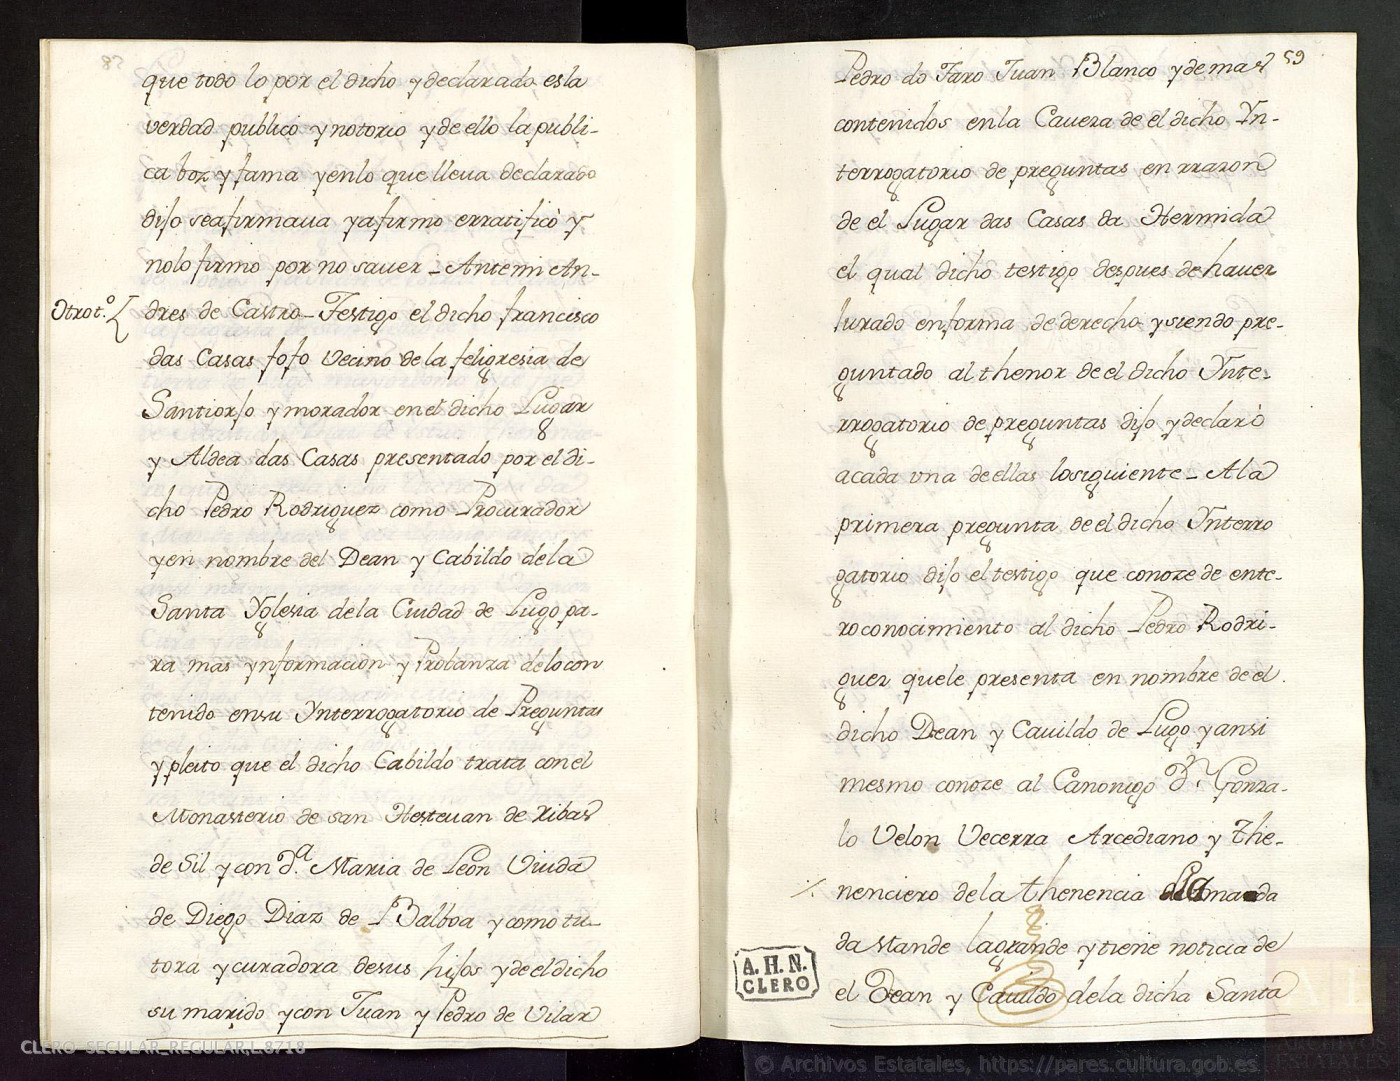 que todo lo por el dicho y declarado es la
verdad publico y notorio y de ello la publi-
ca boz y fama y en lo que lleua declarado
dijo se afirmaua y afirmo erratificò y
no lo firmo por no sauer - Antemi An-
Otro t.º dres de Castro - Testigo el dicho francisco
das Casas fofo Vecino de la feligresia de
Santiorjo y morador en el dicho Lugar
y Aldea das Casas presentado por el di-
cho Pedro Rodriguez como Procurador
y en nombre del Dean y Cabildo de la
Santa Yglesia de la Ciudad de Lugo pa-
ra mas ynformacion y Probanza de lo con
tenido en su Ynterrogatorio de Preguntas
y pleito que el dicho Cabildo trata con el
Monasterio de san Hesteuan de Ribas
de Sil y con D.ª Maria de Leon Viuda
de Diego Diaz de Balboa y como tu-
tora y curadora de sus hijos y de el dicho
su marido y con Juan y Pedro de Vilar
59
Pedro do Faro Juan Blanco y demas
contenidos en la Caueza de el dicho Yn-
terrogatorio de preguntas en rrazon
de el Lugar das Casas da Hermida
el qual dicho testigo despues de hauer
Jurado en forma de derecho y siendo pre-
guntado al thenor de el dicho Ynte-
rrogatorio de preguntas dijo y declarò
a cada vna de ellas lo siguiente - A la
primera pregunta de el dicho Ynterro
gatorio dijo el testigo que conoze de ente-
ro conocimiento al dicho Pedro Rodri-
guez que le presenta en nombre de el
dicho Dean y Cauildo de Lugo y ansi
mesmo conoze al Canonigo D.n Gonza-
lo Velon Vecerra Arcediano y The-
nenciero de la thenencia
da Mande la grande y tiene noticia de
el Dean y Cauildo de la dicha Santa
A. H. N.
CLERO
CLERO-SECULAR_REGULAR,L.8718
© Archivos Estatales, https://pares.cultura.gob.es
ARCHIVOS
ESTATALES